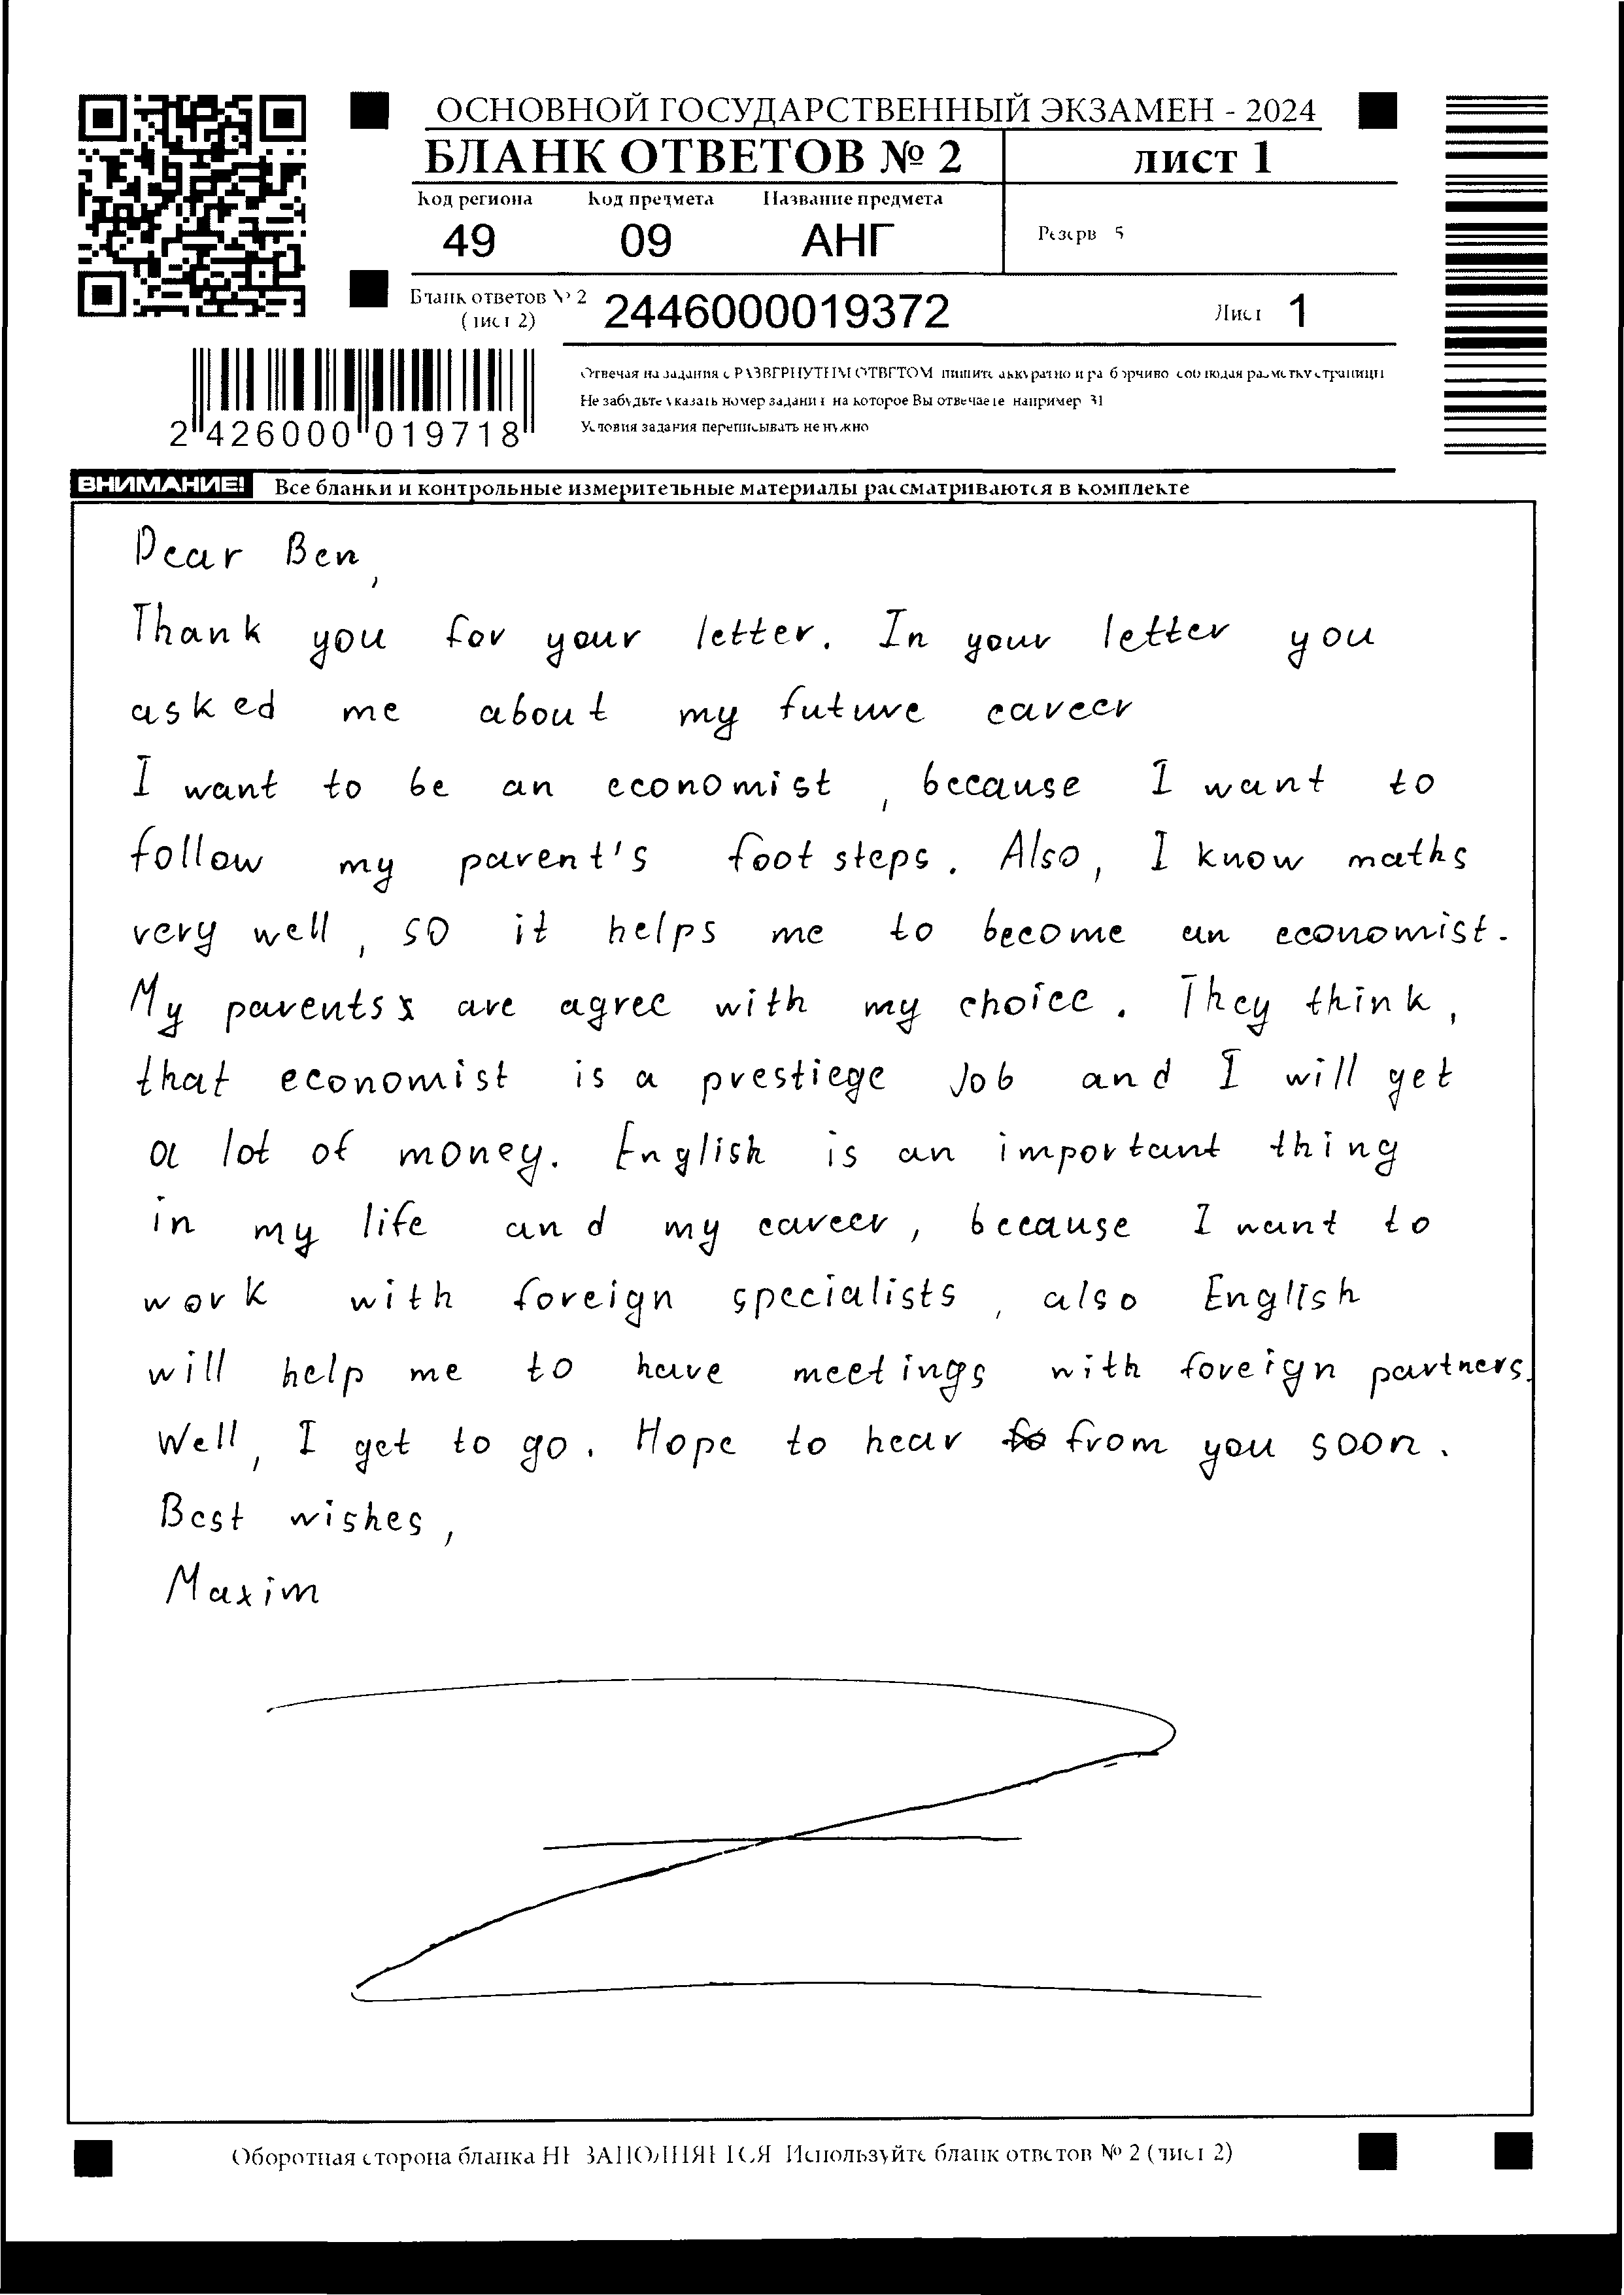 ОСНОВНОЙ ГОСУДАРСТВЕННЫЙ ЭКЗАМЕН - 2024
БЛАНК ОТВЕТОВ № 2
лист 1
Код региона Код предмета Название предмета
49 09 АНГ
Резерв 5
Бланк ответов № 2
(лист 2)
2446000019372
Лист 1
Отвечая на задания с РАЗВЕРНУТЫМ ОТВЕТОМ пишите аккуратно и разборчиво соблюдая разметку страницы
Не забудьте указать номер задания на которое Вы отвечаете например 31
Условия задания переписывать не нужно
2 426000 019718
ВНИМАНИЕ! Все бланки и контрольные измерительные материалы рассматриваются в комплекте
Dear Ben,
Thank you for your letter. In your letter you
asked me about my future career
I want to be an economist, because I want to
follow my parent's foot steps. Also, I know maths
very well, so it helps me to become an economist.
My parents are agree with my choice. They think,
that economist is a prestiege job and I will get
a lot of money. English is an important thing
in my life and my career, because I want to
work with foreign specialists, also English
will help me to have meetings with foreign partners.
Well, I get to go. Hope to hear from you soon.
Best wishes,
Maxim
Оборотная сторона бланка НЕ ЗАПОЛНЯЕТСЯ Используйте бланк ответов № 2 (лист 2)